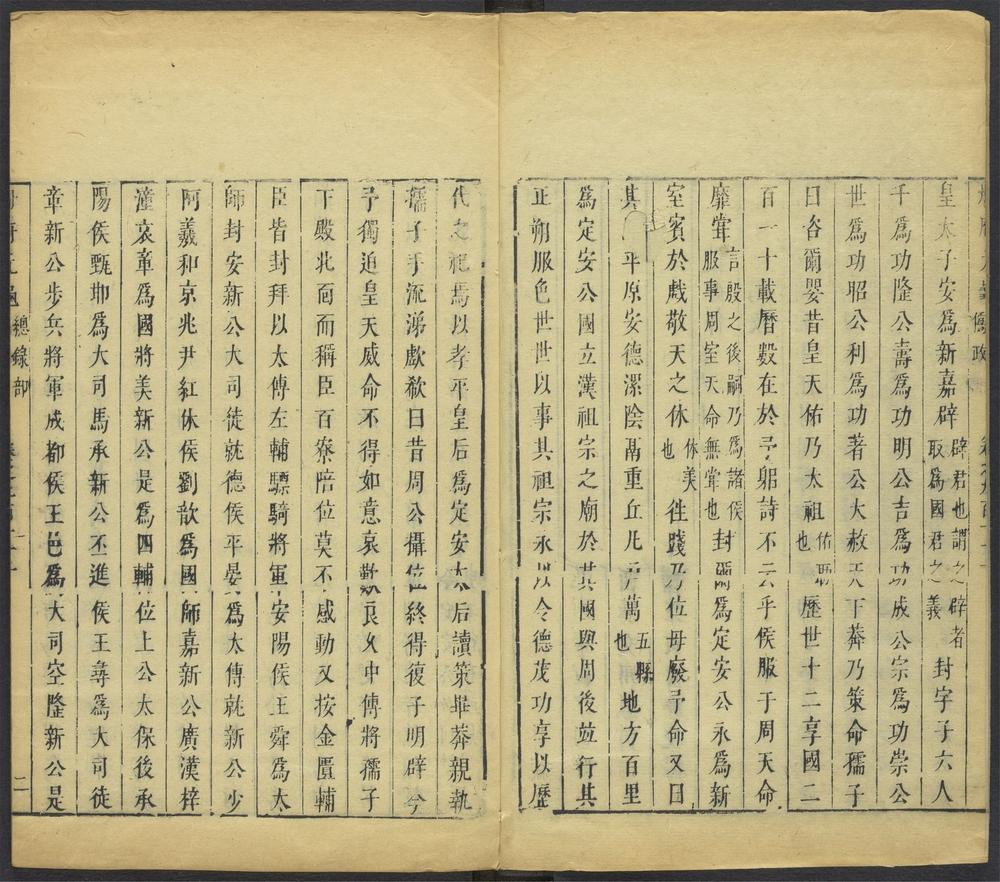 皇太子安爲新嘉辟辟君也謂之辟者取爲國君之義封宇子六人
千爲功隆公壽爲功明公吉爲功成公宗爲功崇公
世爲功昭公利爲功著公大赦天下莽乃策命孺子
曰咨爾嬰昔皇天佑乃太祖佑助也歷世十二享國二
百一十載曆數在於予躬詩不云乎侯服于周天命
靡常言殷之後嗣乃爲諸侯服事周室天命無常也封爾爲定安公永爲新
室賓於戲敬天之休休美也徃踐乃位毋廢予命又曰
其平原安德漯陰鬲重丘凡戸萬五縣也地方百里
爲定安公國立漢祖宗之廟於其國與周後竝行其
正朔服色世世以事其祖宗永以令德茂功享以歷
代之祀焉以孝平皇后爲定安太后讀策畢莽親執
孺子手流涕歔欷曰昔周公攝位終得復子明辟今
予獨迫皇天威命不得如意哀歎良乆中傅將孺子
下殿北面而稱臣百寮陪位莫不感動又按金匱輔
臣皆封拜以太傅左輔驃騎將軍安陽侯王舜爲太
師封安新公大司徒就德侯平晏爲太傅就新公少
阿羲和京兆尹紅休侯劉歆爲國師嘉新公廣漢梓
潼哀章爲國將美新公是爲四輔位上公太保後承
陽侯甄邯爲大司馬承新公丕進侯王尋爲大司徒
章新公步兵將軍成都侯王邑爲大司空隆新公是
總録部
二